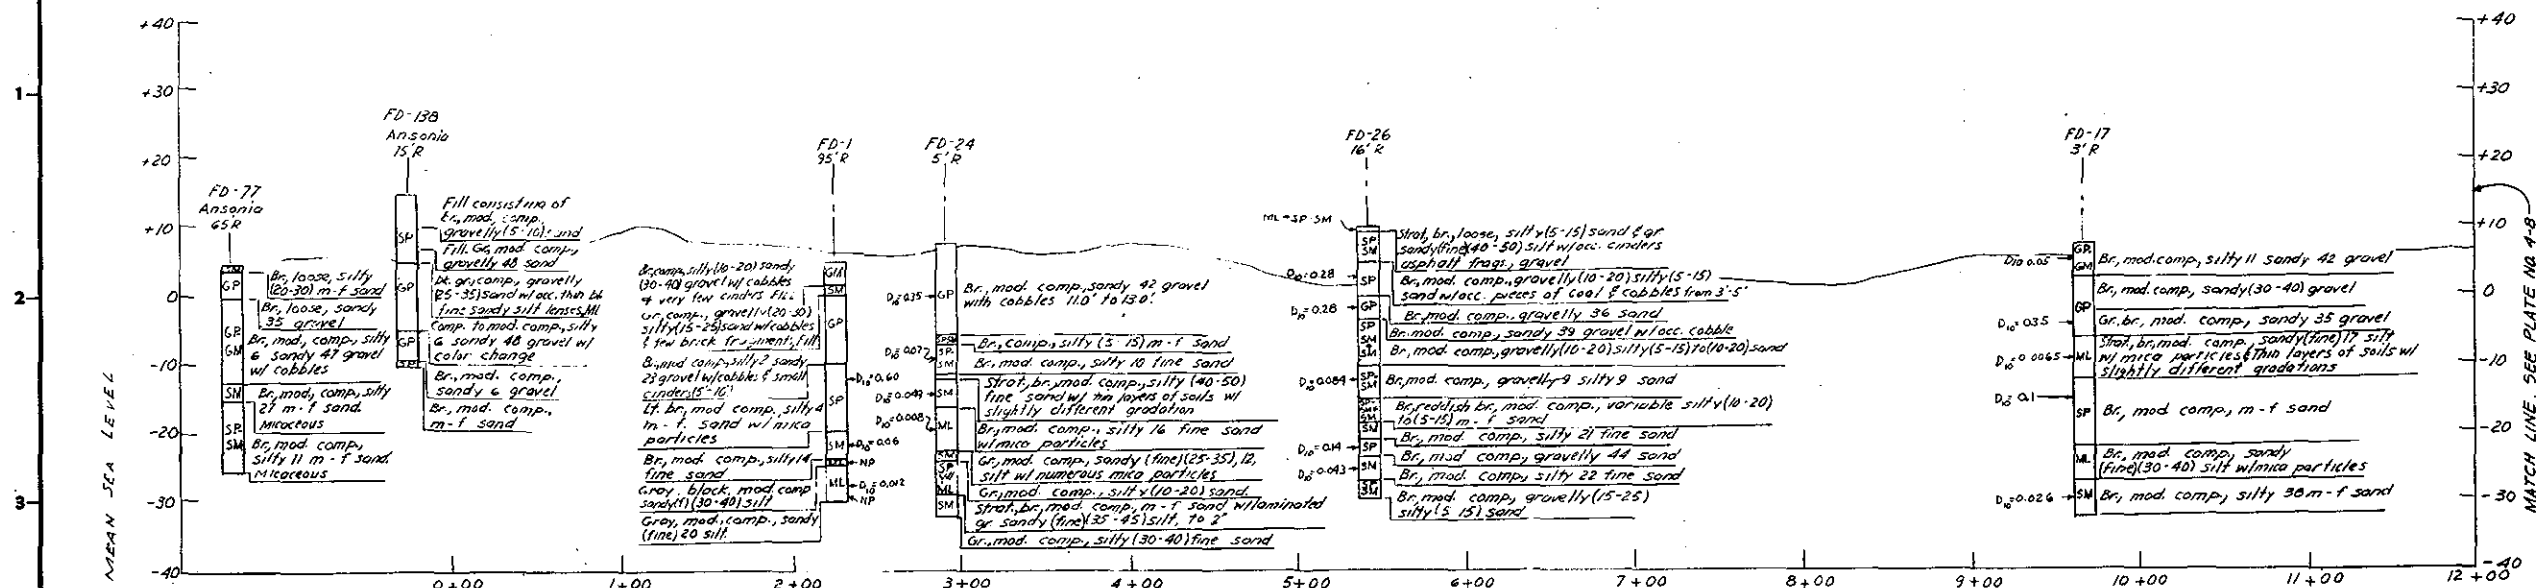 +40
+30
+20
+10
0
-10
-20
-30
-40
MEAN SEA LEVEL
1
2
3
FD-77
Ansonia
65'R
SM
GP
GP
GM
SM
SP
SM
Br., loose, silty
(20-30) m-f sand
Br., loose, sandy
35 gravel
Br., mod. comp., silty
6 sandy 47 gravel
w/ cobbles
Br., mod. comp., silty
27 m-f sand.
Micaceous
Br., mod. comp.,
Silty 11 m-f sand.
Micaceous
FD-138
Ansonia
15'R
SP
GP
GP
SP
Fill consisting of
br., mod. comp.
gravelly (5-10) sand
Fill. Gr., mod. comp.,
gravelly 48 sand
Dk. gr., comp., gravelly
(25-35) sand w/ occ. thin bk
fine sandy silt lenses, ML
Comp. to mod. comp., silty
6 sandy 48 gravel w/
color change
Br., mod. comp.,
sandy 6 gravel
Br., mod. comp.,
m-f sand
FD-1
95'R
GM
SM
GP
SP
SM
ML
ML
Br., comp., silty (10-20) sandy
(30-40) gravel w/ cobbles
& very few cinders Fill
Gr., comp., gravelly (20-30)
silty (15-25) sand w/ cobbles
& few brick fragments, fill
Br., mod. comp., silty 2 sandy
23 gravel w/ cobbles & small
cinders (5-10)
Lt. br., mod. comp., silty 4
m-f. sand w/ mica
particles
Br., mod. comp., silty 14
fine sand
Gray black, mod. comp
sandy (f) (30-40) silt
Gray, mod. comp., sandy
(fine) 20 silt.
D10=0.60
D10=0.06
NP
D10=0.012
NP
FD-24
5'R
D10=0.35
D10=0.07
D10=0.049
D10=0.008
GP
SP
SM
SM
ML
SM
SP
ML
SM
Br., mod. comp., sandy 42 gravel
with cobbles 11.0' to 13.0'.
Br., comp., silty (5-15) m-f sand
Br., mod. comp., silty 10 fine sand
Strat., br., mod. comp., silty (40-50)
fine sand w/ thin layers of soils w/
slightly different gradation
Br., mod. comp., silty 16 fine sand
w/ mica particles
Gr., mod. comp., sandy (fine) (25-35), 12,
silt w/ numerous mica particles
Gr., mod. comp., silty (10-20) sand
Strat., br., mod. comp., m-f sand w/ laminated
gr. sandy (fine) (35-45) silt, to 2"
Gr., mod. comp., silty (30-40) fine sand
FD-26
16'R
ML=SP-SM
D10=0.28
D10=0.28
D10=0.084
D10=0.14
D10=0.043
SP
SM
SP
GP
SP
SM
SM
SP-
SM
SM
SP
SM
SP
SM
Strat., br., loose, silty (5-15) sand & gr
sandy (fine) (40-50) silt w/ occ. cinders
asphalt frags., gravel
Br., mod. comp., gravelly (10-20) silty (5-15)
sand w/ occ. pieces of coal & cobbles from 3'-5'
Br., mod. comp., gravelly 36 sand
Br. mod. comp., sandy 39 gravel w/ occ. cobble
Br., mod. comp., gravelly (10-20) silty (5-15) to (10-20) sand
Br., mod. comp., gravelly 9 silty 9 sand
Br., reddish br., mod. comp., variable silty (10-20)
to (5-15) m-f sand
Br., mod. comp., silty 21 fine sand
Br., mod comp., gravelly 44 sand
Br., mod. comp., silty 22 fine sand
Br., mod. comp., gravelly (15-25)
silty (5 15) sand
FD-17
3'R
D10 0.05
D10=0.35
D10=0.0065
D10=0.1
D10=0.026
GP
GM
GP
ML
SP
ML
SM
Br., mod. comp., silty 11 sandy 42 gravel
Br., mod. comp., sandy (30-40) gravel
Gr. br., mod. comp., sandy 35 gravel
Strat., br., mod. comp., sandy (fine) 17 silt
w/ mica particles & Thin layers of soils w/
slightly different gradations
Br., mod. comp., m-f sand
Br., mod. comp., sandy
(fine) (30-40) silt w/ mica particles
Br., mod. comp., silty 38 m-f sand
+40
+30
+20
+10
0
-10
-20
-30
-40
MATCH LINE. SEE PLATE NO. 4-8
0+00
1+00
2+00
3+00
4+00
5+00
6+00
7+00
8+00
9+00
10+00
11+00
12+00